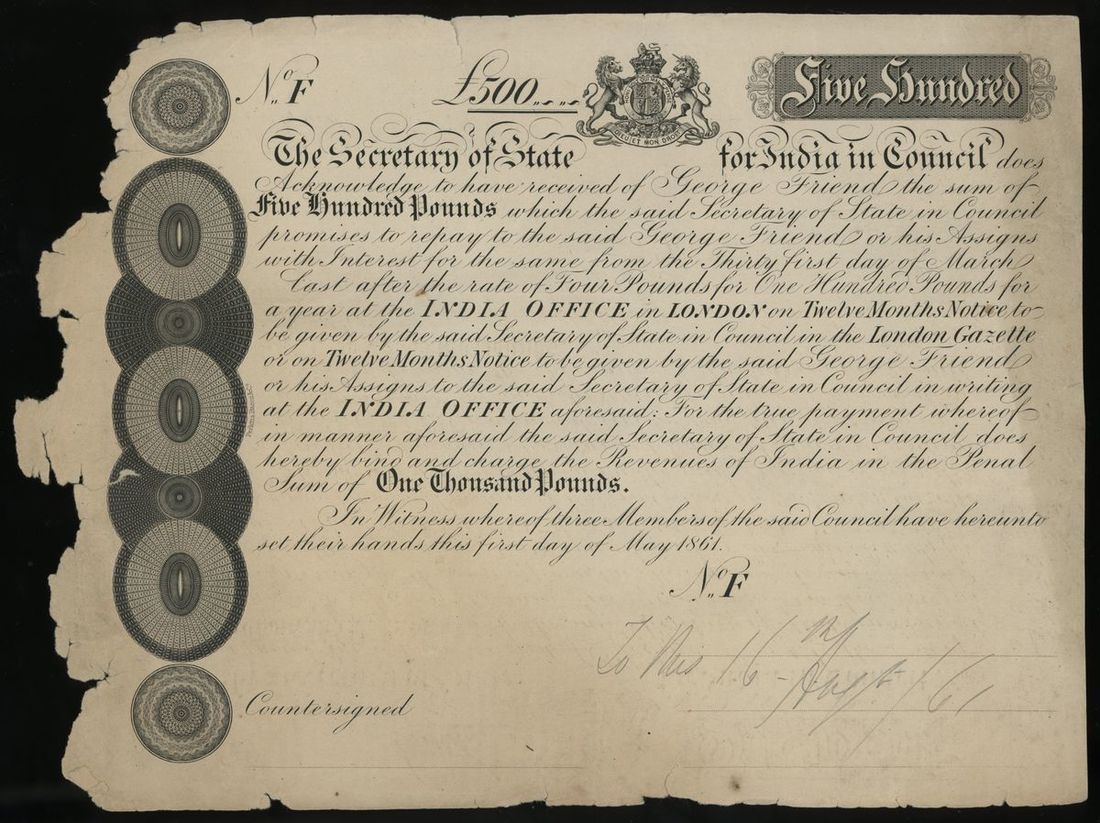 Nº F £500
Five Hundred
DIEU ET MON DROIT
The Secretary of State for India in Council does
Acknowledge to have received of George Friend the sum of
Five Hundred Pounds which the said Secretary of State in Council
promises to repay to the said George Friend or his Assigns
with Interest for the same from the Thirty first day of March
Last after the rate of Four Pounds for One Hundred Pounds for
a year at the INDIA OFFICE in LONDON on Twelve Months Notice to
be given by the said Secretary of State in Council in the London Gazette
or on Twelve Months Notice to be given by the said George Friend
or his Assigns to the said Secretary of State in Council in writing
at the INDIA OFFICE aforesaid: For the true payment whereof
in manner aforesaid the said Secretary of State in Council does
hereby bind and charge the Revenues of India in the Penal
Sum of One Thousand Pounds.
In Witness whereof three Members of the said Council have hereunto
set their hands this first day of May 1861.
Nº F
16
61
Countersigned